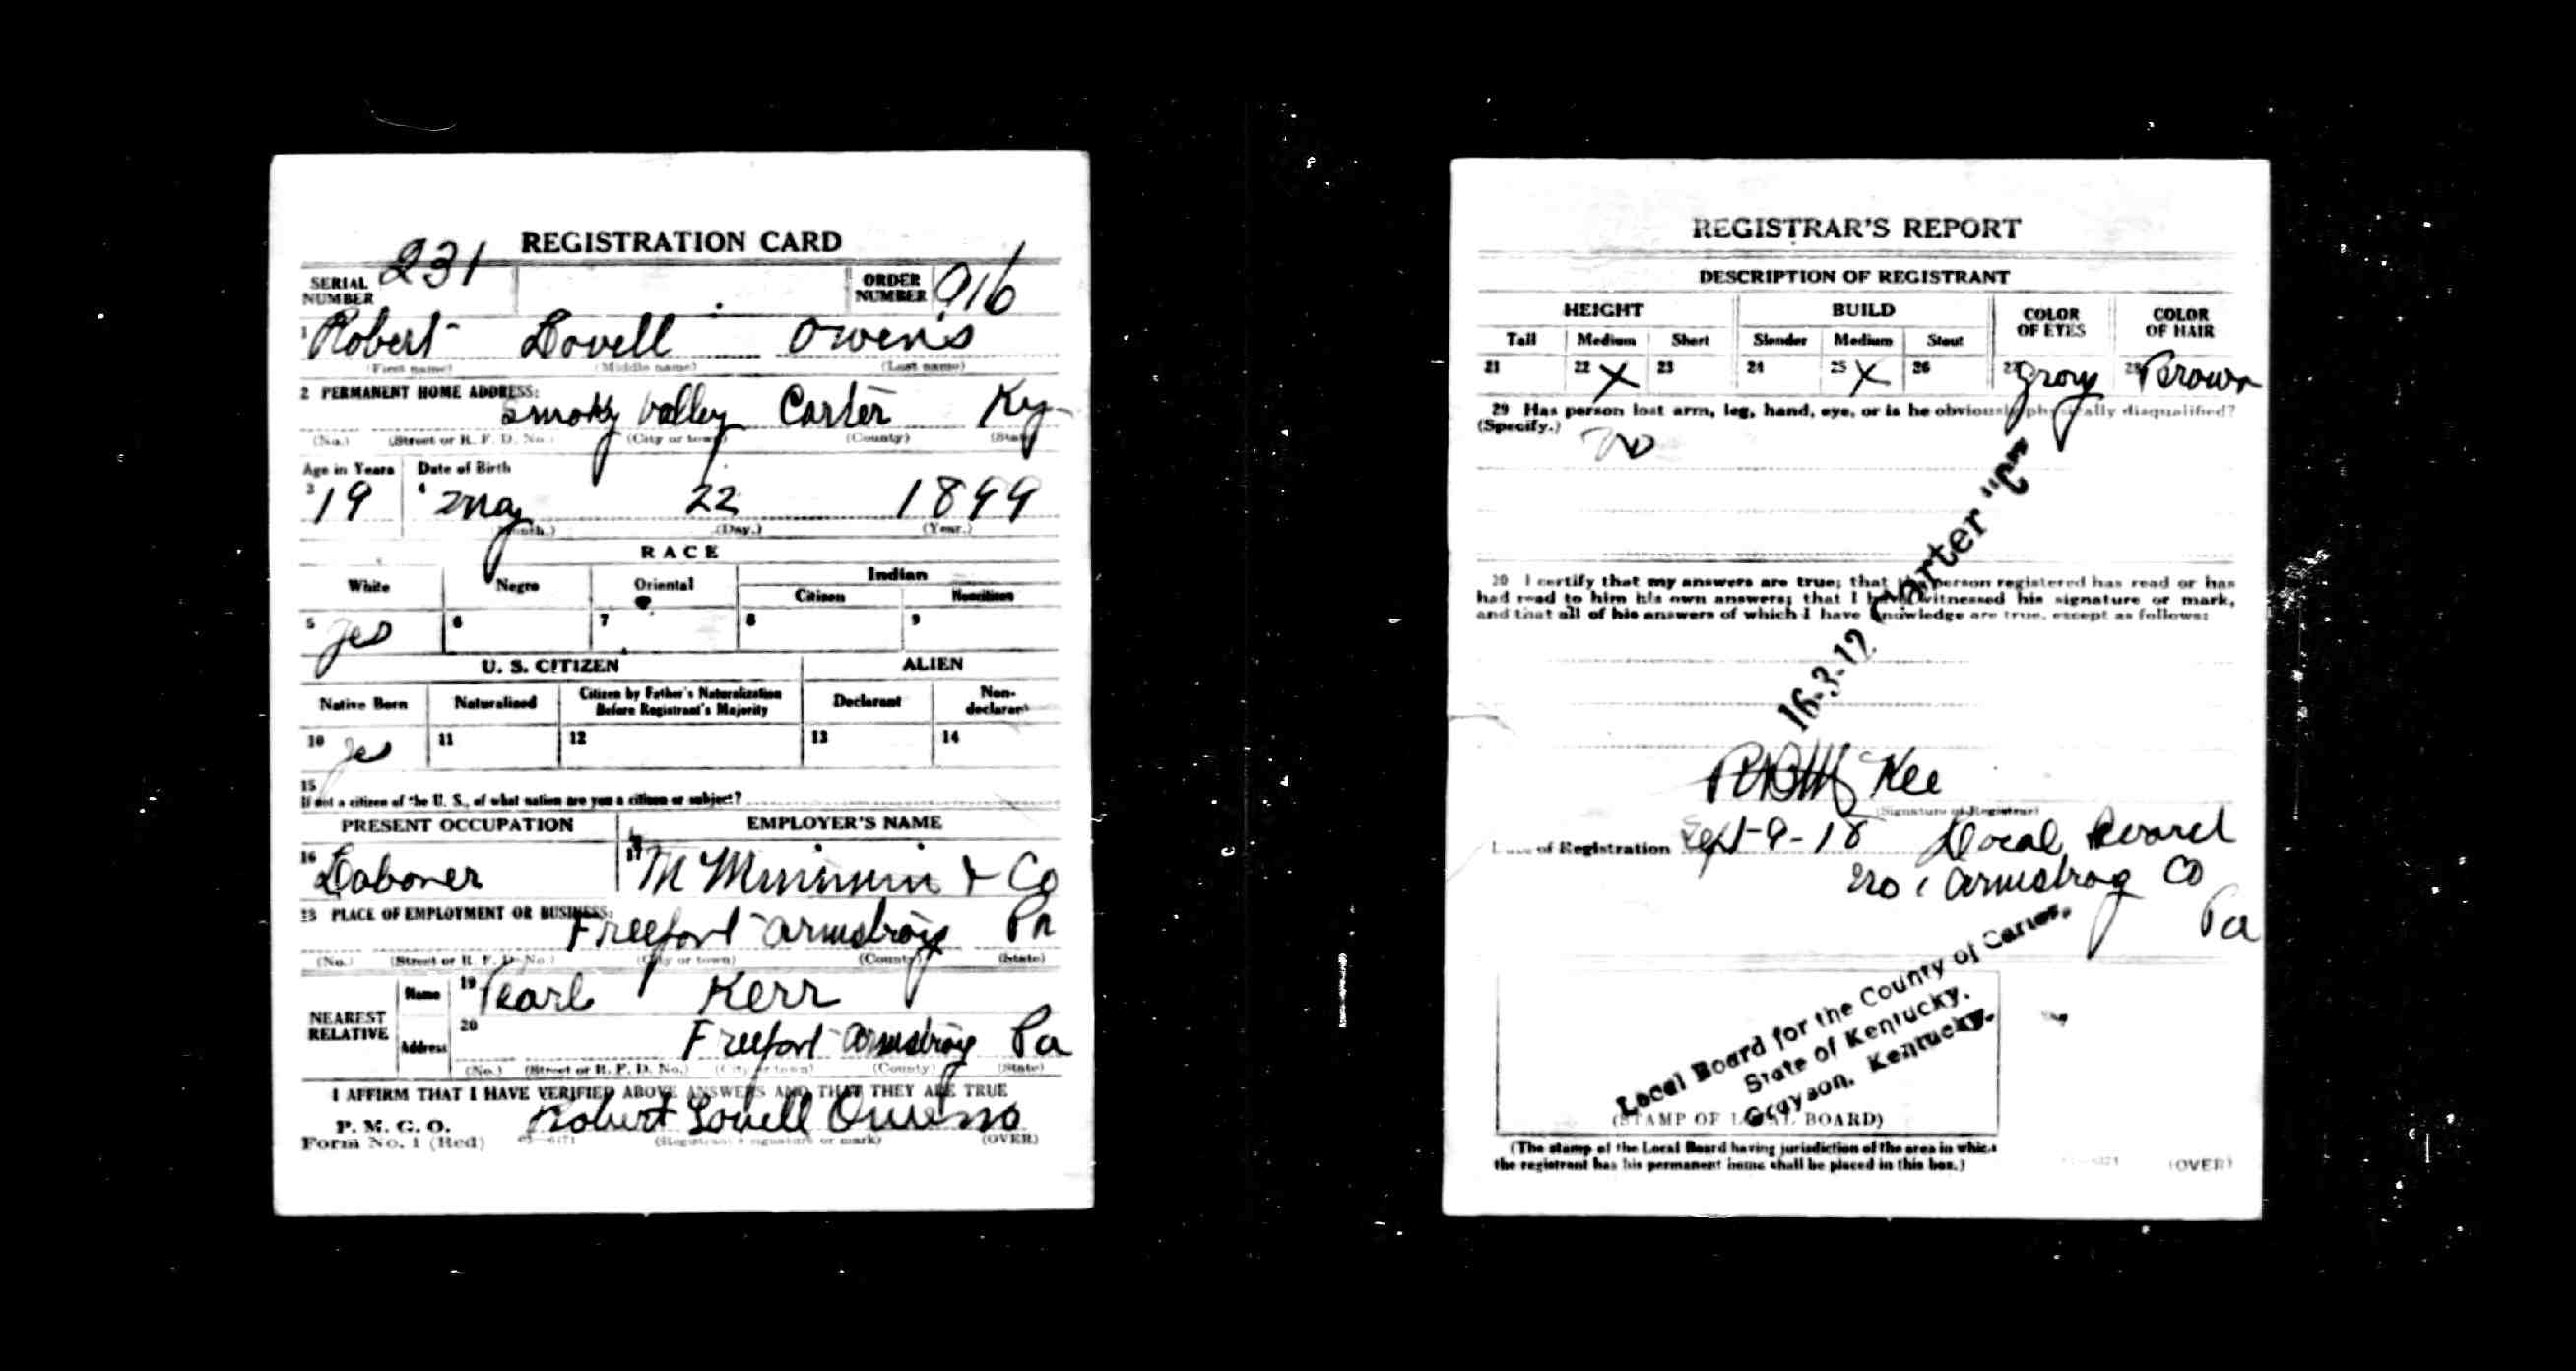 REGISTRATION CARD
SERIAL NUMBER 231 ORDER NUMBER 916
1 Robert Lovell Owens
(First name) (Middle name) (Last name)
2 PERMANENT HOME ADDRESS:
Smoky Valley Carter Ky
(No.) (Street or R. F. D. No.) (City or town) (County) (State)
Age in Years Date of Birth
3 19 4 May 22 1899
(Month.) (Day.) (Year.)
RACE
White Negro Oriental Indian
Citizen Noncitizen
5 Yes 6 7 8 9
U. S. CITIZEN ALIEN
Native Born Naturalized Citizen by Father's Naturalization Before Registrant's Majority Declarant Non-declarant
10 Yes 11 12 13 14
15
If not a citizen of the U. S., of what nation are you a citizen or subject?
PRESENT OCCUPATION EMPLOYER'S NAME
16 Laborer 17 & Co
18 PLACE OF EMPLOYMENT OR BUSINESS:
Freeport Armstrong Pa
(No.) (Street or R. F. D. No.) (City or town) (County) (State)
NEAREST RELATIVE Name 19 Pearl Kerr
Address 20 Freeport Armstrong Pa
(No.) (Street or R. F. D. No.) (City or town) (County) (State)
I AFFIRM THAT I HAVE VERIFIED ABOVE ANSWERS AND THAT THEY ARE TRUE
P. M. G. O.
Form No. 1 (Red) 03—6171 Robert Lovell Owens
(Registrant's signature or mark) (OVER)
REGISTRAR'S REPORT
DESCRIPTION OF REGISTRANT
HEIGHT BUILD COLOR OF EYES COLOR OF HAIR
Tall Medium Short Slender Medium Stout
21 22 X 23 24 25 X 26 27 Gray 28 Brown
29 Has person lost arm, leg, hand, eye, or is he obviously physically disqualified?
(Specify.) no
30 I certify that my answers are true; that the person registered has read or has
had read to him his own answers; that I have witnessed his signature or mark,
and that all of his answers of which I have knowledge are true, except as follows:
16-3-12 Carter "C"
McKee
(Signature of Registrar)
Date of Registration Sept-9-18 Local Board
No 1 Armstrong Co
Pa
Local Board for the County of Carter,
State of Kentucky.
Grayson, Kentucky.
(STAMP OF LOCAL BOARD)
(The stamp of the Local Board having jurisdiction of the area in which
the registrant has his permanent home shall be placed in this box.)
(OVER)